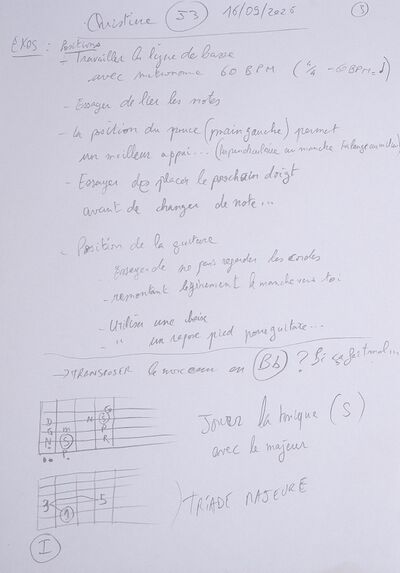 Christine S3 16/09/2026 3
EXOS : Positions
- Travailler la ligne de basse
avec métronome 60 BPM ( 4/4 - 60 BPM = ♩)
- Essayer de lier les notes
- la position du pouce (main gauche) permet
un meilleur appui... (perpendiculaire au manche
- Essayer de placer le prochain doigt
avant de changer de note...
- Position de la guitare
Essayer de ne pas regarder les cordes
- remontant légèrement le manche vers toi
- Utiliser une chaise
- " un repose pied pour guitare...
-> TRANSPOSER le morceau en Bb ? Si ça fait mal...
Jouer la tonique (S)
avec le majeur
3 1 5
TRIADE MAJEURE
I